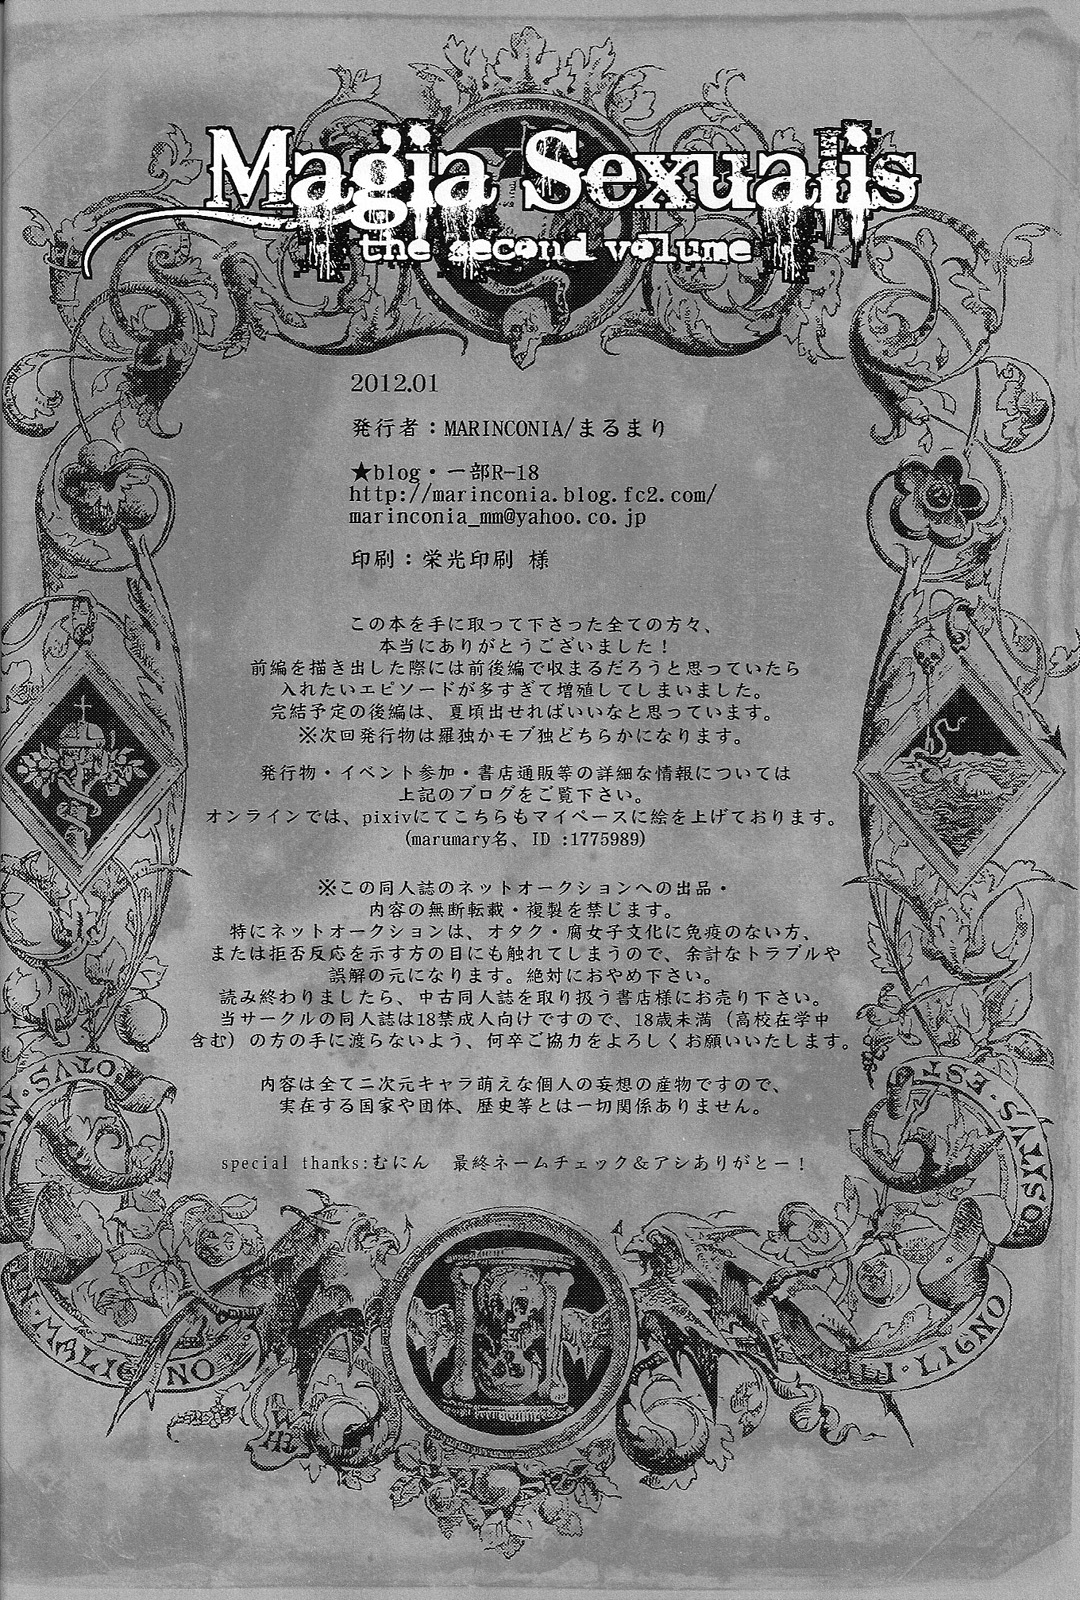 Magia Sexualis
the second volume
2012.01
発行者：MARINCONIA/まるまり
★blog・一部R-18
http://marinconia.blog.fc2.com/
marinconia_mm@yahoo.co.jp
印刷：栄光印刷 様
この本を手に取って下さった全ての方々、
本当にありがとうございました！
前編を描き出した際には前後編で収まるだろうと思っていたら
入れたいエピソードが多すぎて増殖してしまいました。
完結予定の後編は、夏頃出せればいいなと思っています。
※次回発行物は羅独かモブ独どちらかになります。
発行物・イベント参加・書店通販等の詳細な情報については
上記のブログをご覧下さい。
オンラインでは、pixivにてこちらもマイペースに絵を上げております。
(marumary名、ID :1775989)
※この同人誌のネットオークションへの出品・
内容の無断転載・複製を禁じます。
特にネットオークションは、オタク・腐女子文化に免疫のない方、
または拒否反応を示す方の目にも触れてしまうので、余計なトラブルや
誤解の元になります。絶対におやめ下さい。
読み終わりましたら、中古同人誌を取り扱う書店様にお売り下さい。
当サークルの同人誌は18禁成人向けですので、18歳未満（高校在学中
含む）の方の手に渡らないよう、何卒ご協力をよろしくお願いいたします。
内容は全て二次元キャラ萌えな個人の妄想の産物ですので、
実在する国家や団体、歴史等とは一切関係ありません。
special thanks:むにん　最終ネームチェック＆アシありがとー！